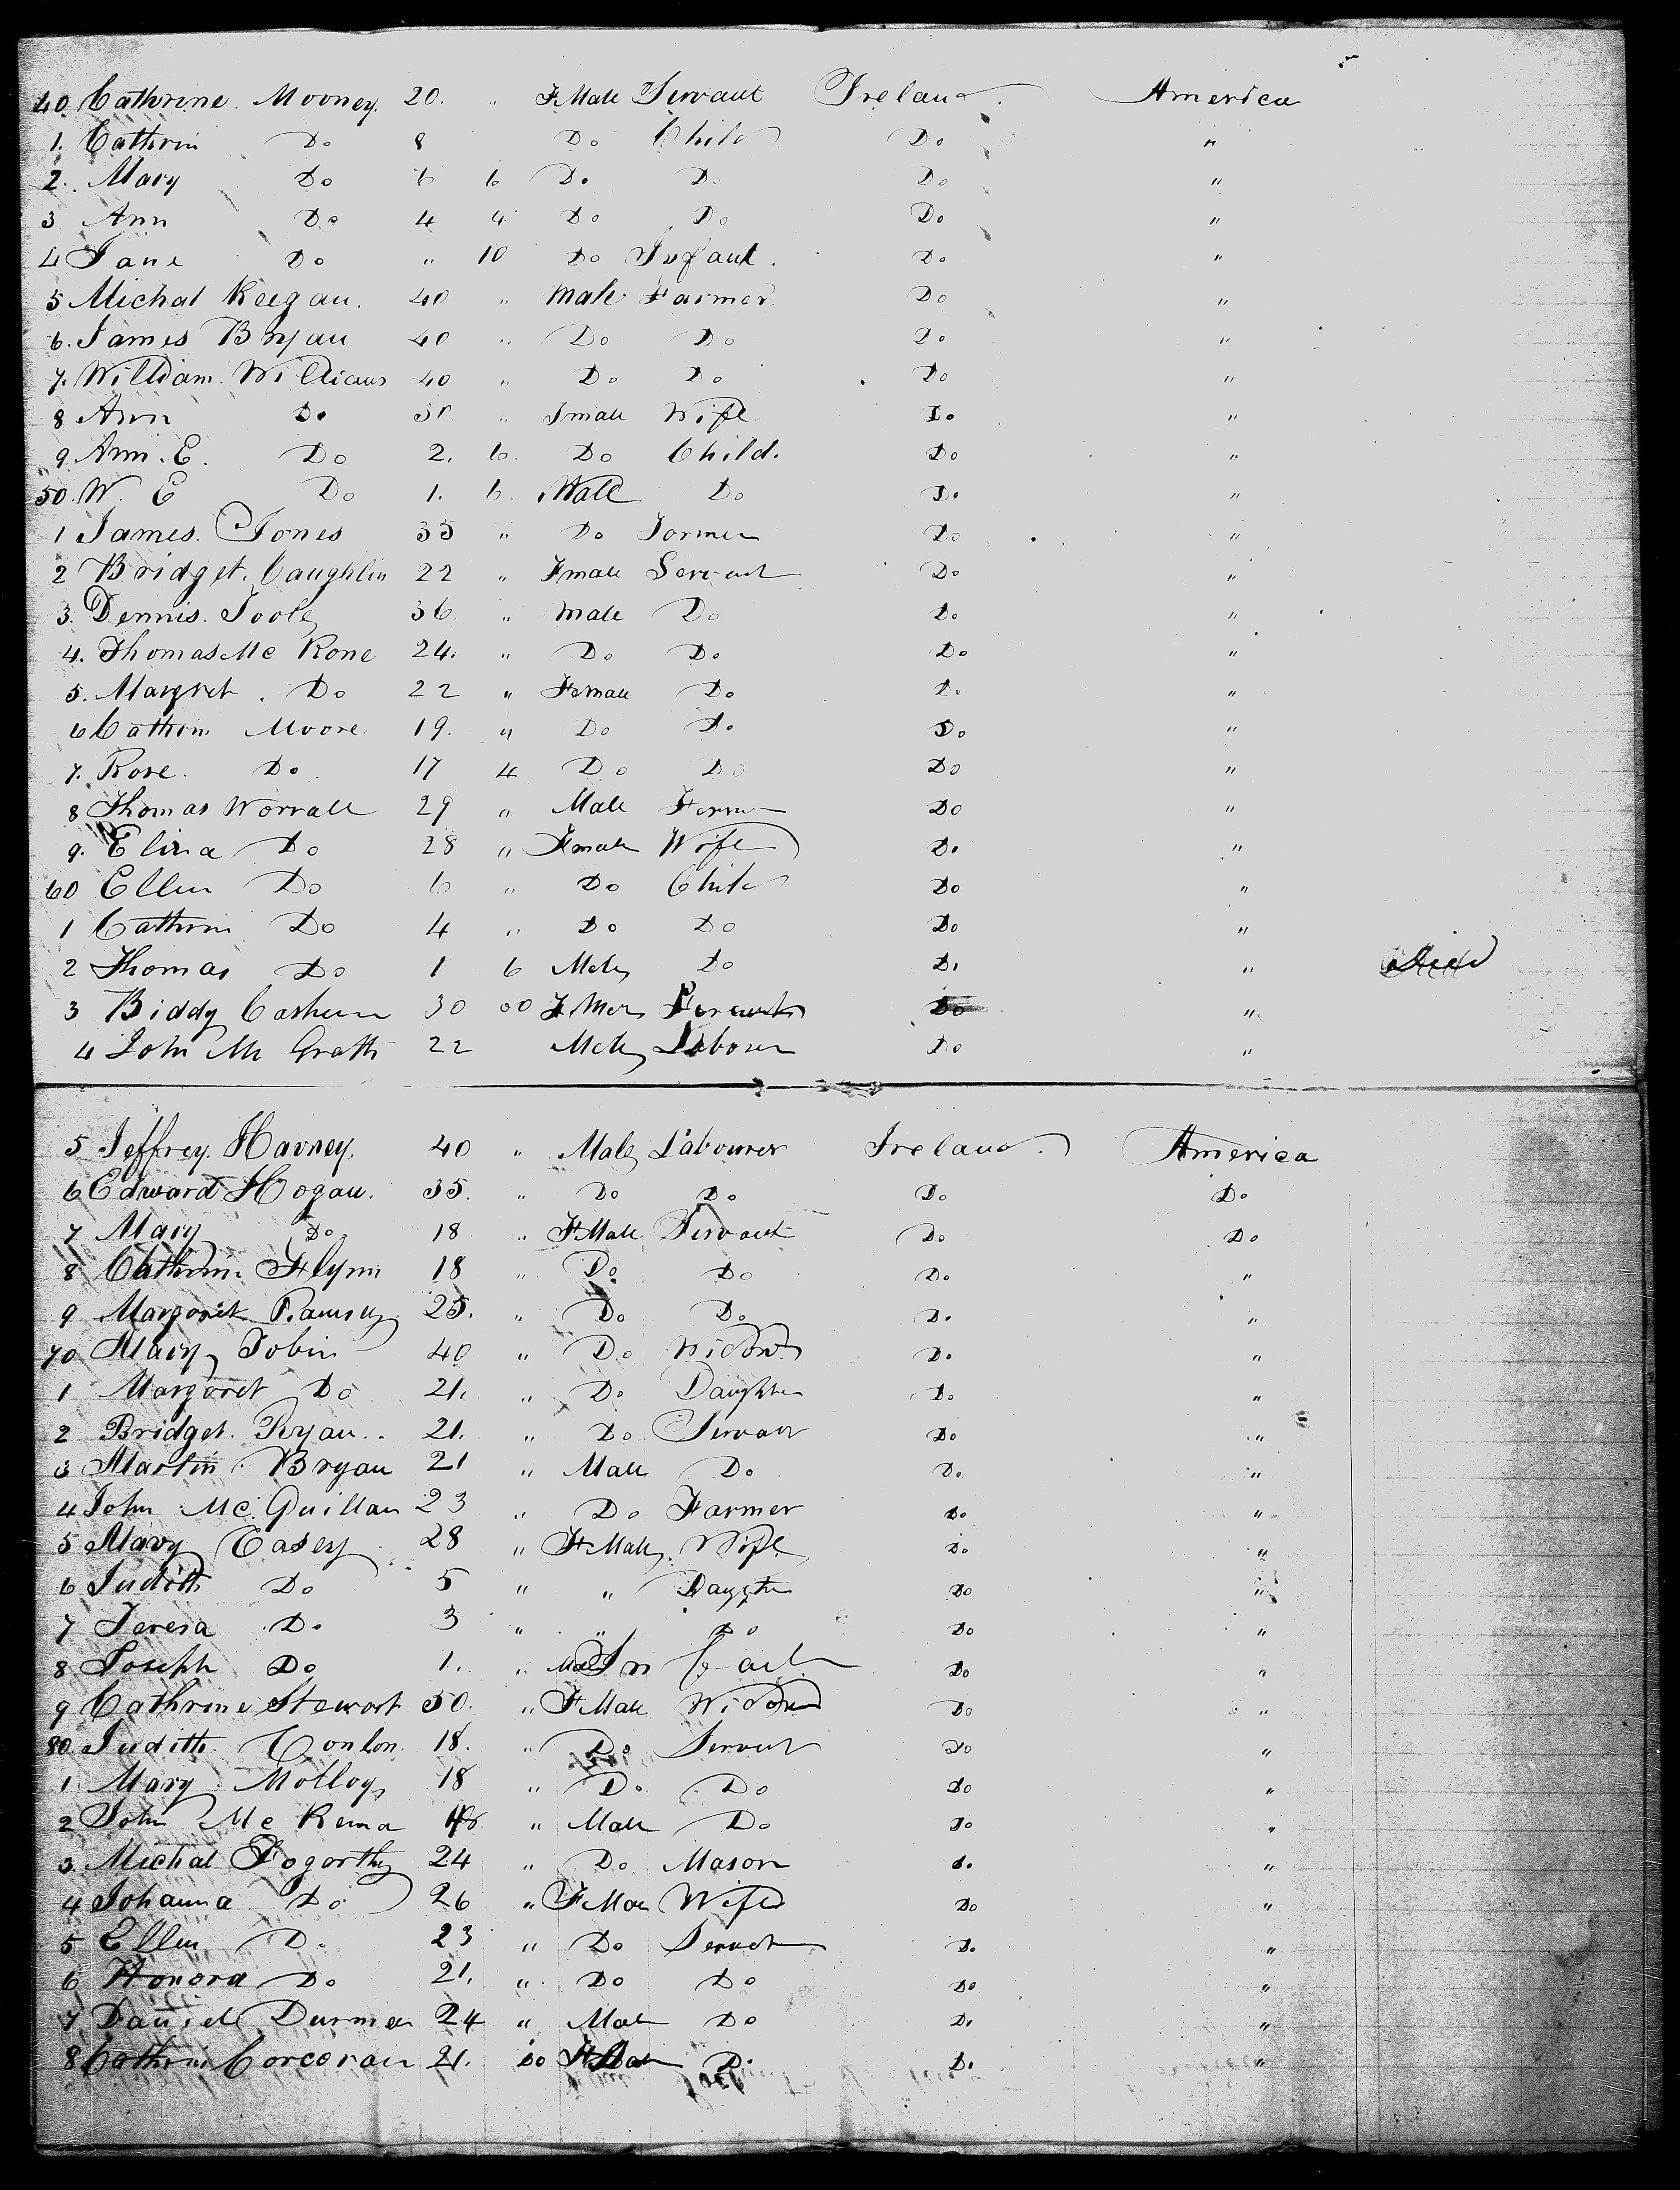 40. Cathrine Mooney. 20. " FMale Servant Ireland. America
1. Cathrin Do 8 Do Child Do "
2. Mary Do 6 6 Do Do Do "
3 Ann Do 4 4 Do Do Do "
4 Jane Do " 10 Do Infant. Do "
5 Michal Keegan. 40 " Male Farmer Do "
6. James Bryan 40 " Do Do Do "
7. William Williams 40 " Do Do Do "
8 Ann Do " Fmale Wife Do "
9 Ann. E. Do 2. 6. Do Child. Do "
50. W. E Do 1. 6. Male Do Do "
1 James. Jones 35 " Do Farmer Do "
2 Bridget. Caughlin 22 " Fmale Servant Do "
3. Dennis. Toole 36 " Male Do Do "
4. Thomas Mc Kone 24. " Do Do Do "
5. Margret. Do 22 " Female Do Do "
6 Cathrin Moore 19. " Do Do Do "
7. Rose. Do 17 4 Do Do Do "
8 Thomas Worrall 29 " Male Farmer Do "
9. Eliza Do 28 " Fmale Wife Do "
60 Ellen Do 6 " Do Child Do "
1 Cathrin Do 4 " Do Do Do "
2 Thomas Do 1 6 Male Do Do " Died
3 Biddy 30 00 FMale Servant Do "
4 John Mc Grath 22 Male Labourer Do "
5 Jeffrey. Harney. 40 " Male Labourer Ireland. America
6 Edward Hogan. 35. " Do Do Do Do
7 Mary Do 18 " FMale Servant Do Do
8 Cathrin Flynn 18 " Do Do Do "
9 Margaret Ramsey 25. " Do Do Do "
70 Mary Tobin 40 " Do Widow Do "
1 Margaret Do 21. " Do Daughter Do "
2 Bridget. Ryan. 21. " Do Servant Do "
3 Martin Bryan 21 " Male Do Do "
4 John Mc. Quillan 23 " Do Farmer Do "
5 Mary Casey 28 " FMale. Wife Do "
6 Judith Do 5 " " Daughter Do "
7 Teresa Do 3 " " Do Do "
8 Joseph Do 1. " Male Do "
9 Cathrine Stewart 50. " FMale Widow Do "
80. Judith. Conlon. 18. " Do Servant Do "
1 Mary Molloy 18 " Do Do Do "
2 John Mc Kenna " Male Do Do "
3. Michal Fogarthy 24 " Do Mason Do "
4 Johanna Do 26 " FMale Wife Do "
5 Ellen Do 23 " Do Servant Do "
6 Honora Do 21. " Do Do Do "
7 Daniel 24 " Male Do Do "
8 Cathrin Corcoran 21. 00 FMale Do Do "